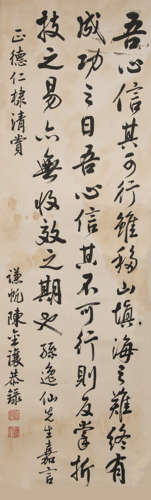 吾心信其可行雖移山填海之難終有
成功之日吾心信其不可行則反掌折
枝之易亦無收效之期也 孫逸仙先生嘉言
正德仁棣清賞
謙忱陳金讓恭錄